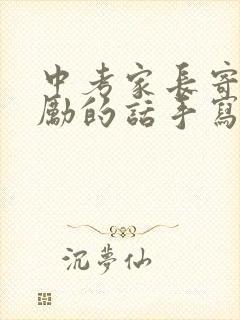 中考家長寄
勵的話手寫
沉夢仙